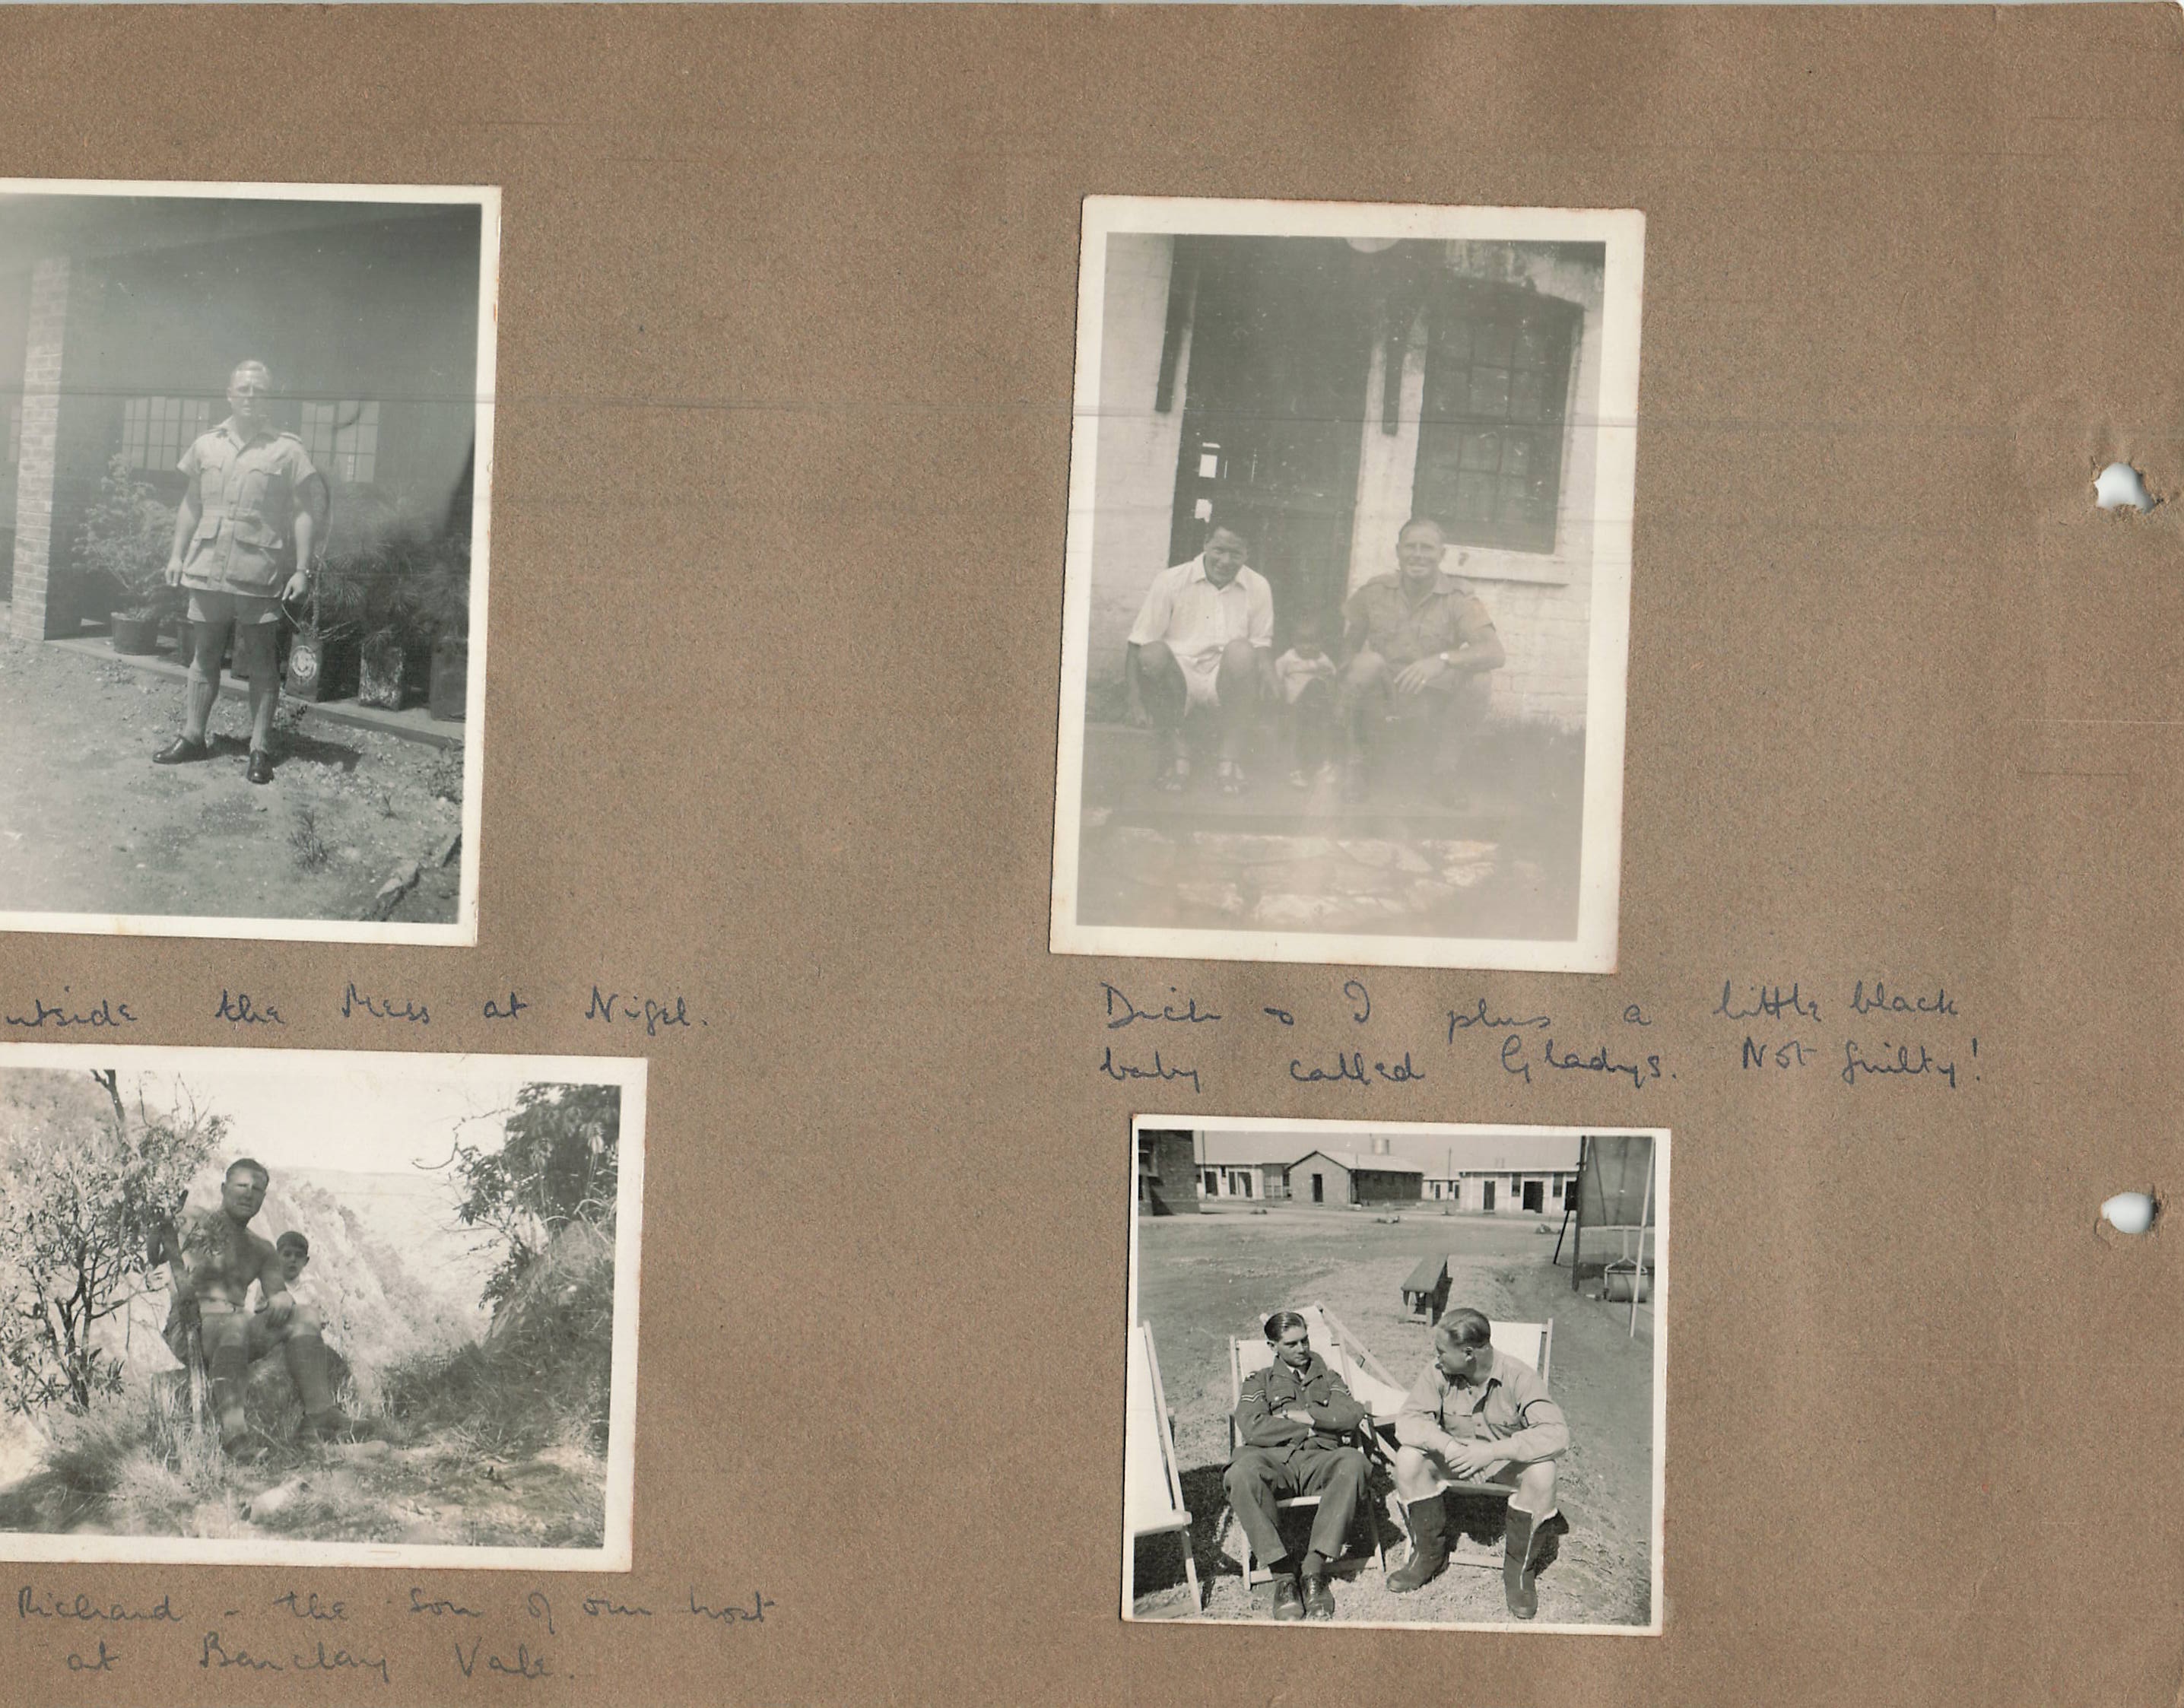 utside the Mess at Nigel.
Dick & I plus a little black
baby called Gladys. Not guilty!
Richard - the son of our host
at Barclay Vale.